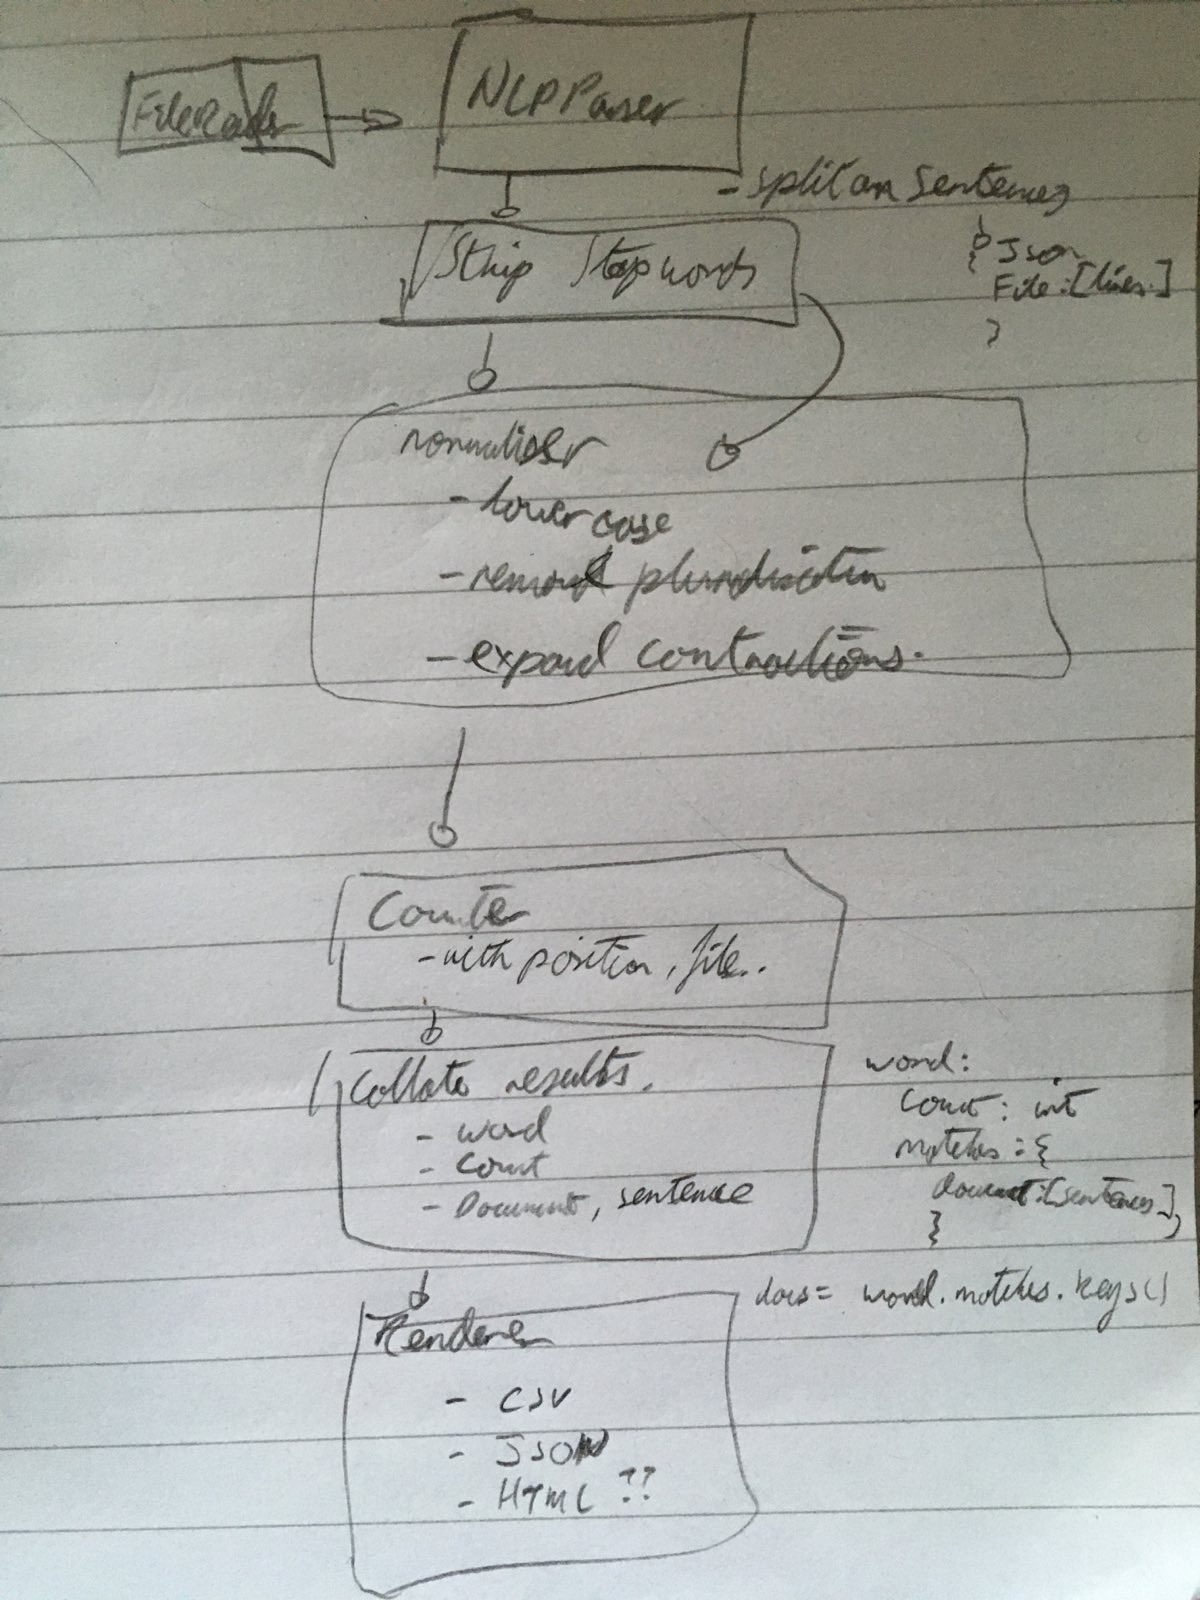 FileReader
NLPParser
- split on sentences
Strip Stopwords
Json
{
File:[lines]
}
normaliser
- lower case
- remove pluralisation
- expand contractions.
Counter
- with position, file..
Collate results.
- word
- count
- Document, sentence
word:
Count: int
matches: {
document:[sentences],
}
docs= word.matches.keys()
Renderer
- CSV
- JSON
- HTML ??